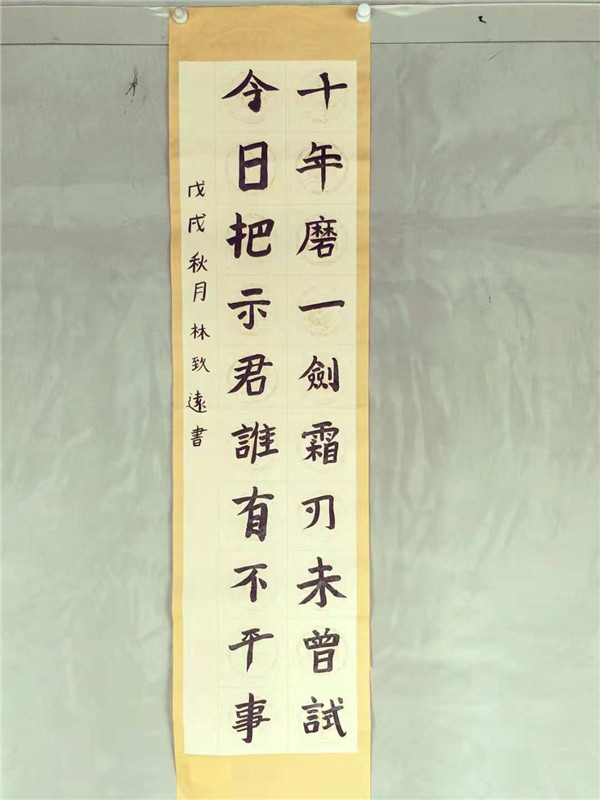 十年磨一劍霜刃未曾試
今日把示君誰有不平事
戊戌秋月林致遠書